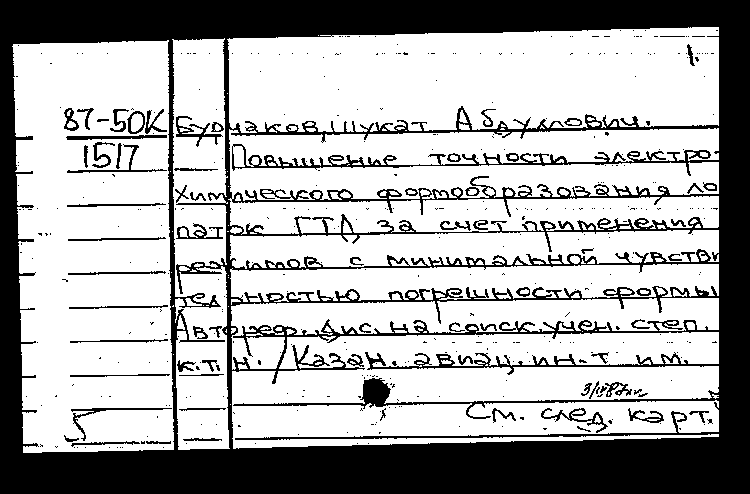 1.
87-50К Бурчаков, Шукат Абдуллович.
1517 Повышение точности электро-
химического формообразования ло
паток ГТД за счет применения
режимов с минимальной чувстви
тельностью погрешности формы
Автореф. дис. на соиск. учен. степ.
к.т.н. / Казан. авиац. ин-т им.
См. след. карт.
5